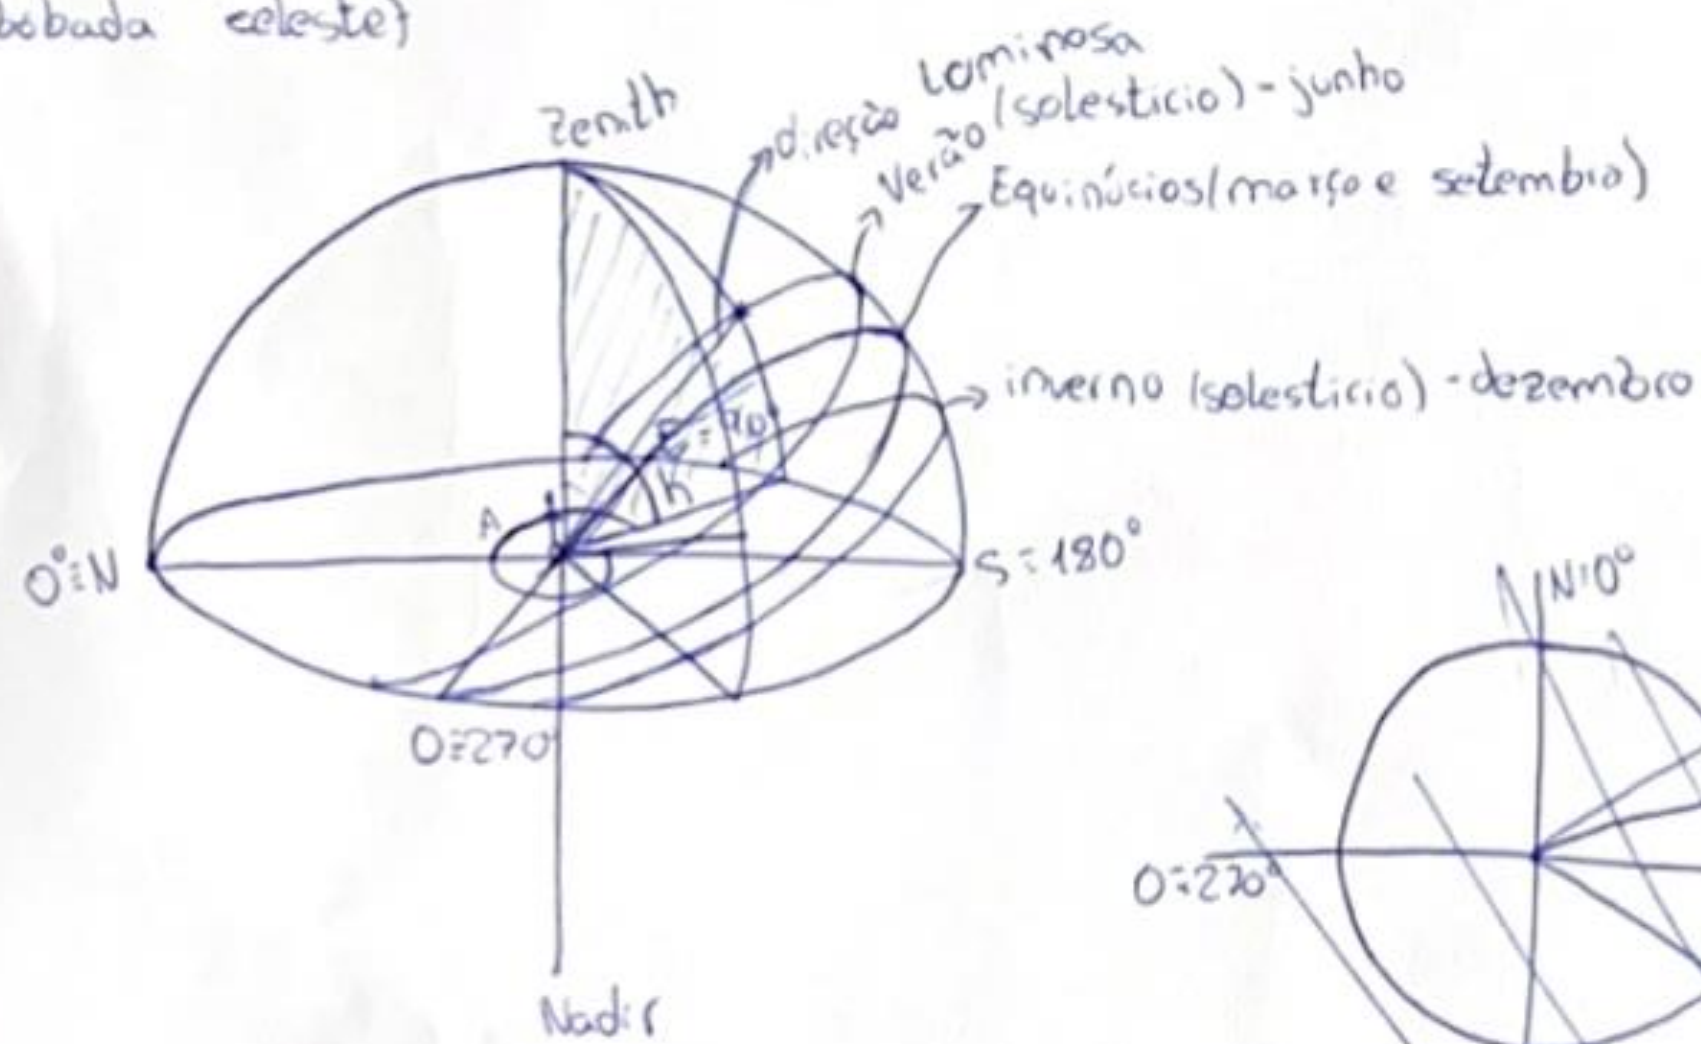 bóbada celeste)
Zenith
direção Luminosa
Verão (solesticio) - junho
Equinócios (março e setembro)
inverno (solesticio) - dezembro
A
h
0°≡N
S=180°
O≡270°
Nadir
N=0°
O=270°